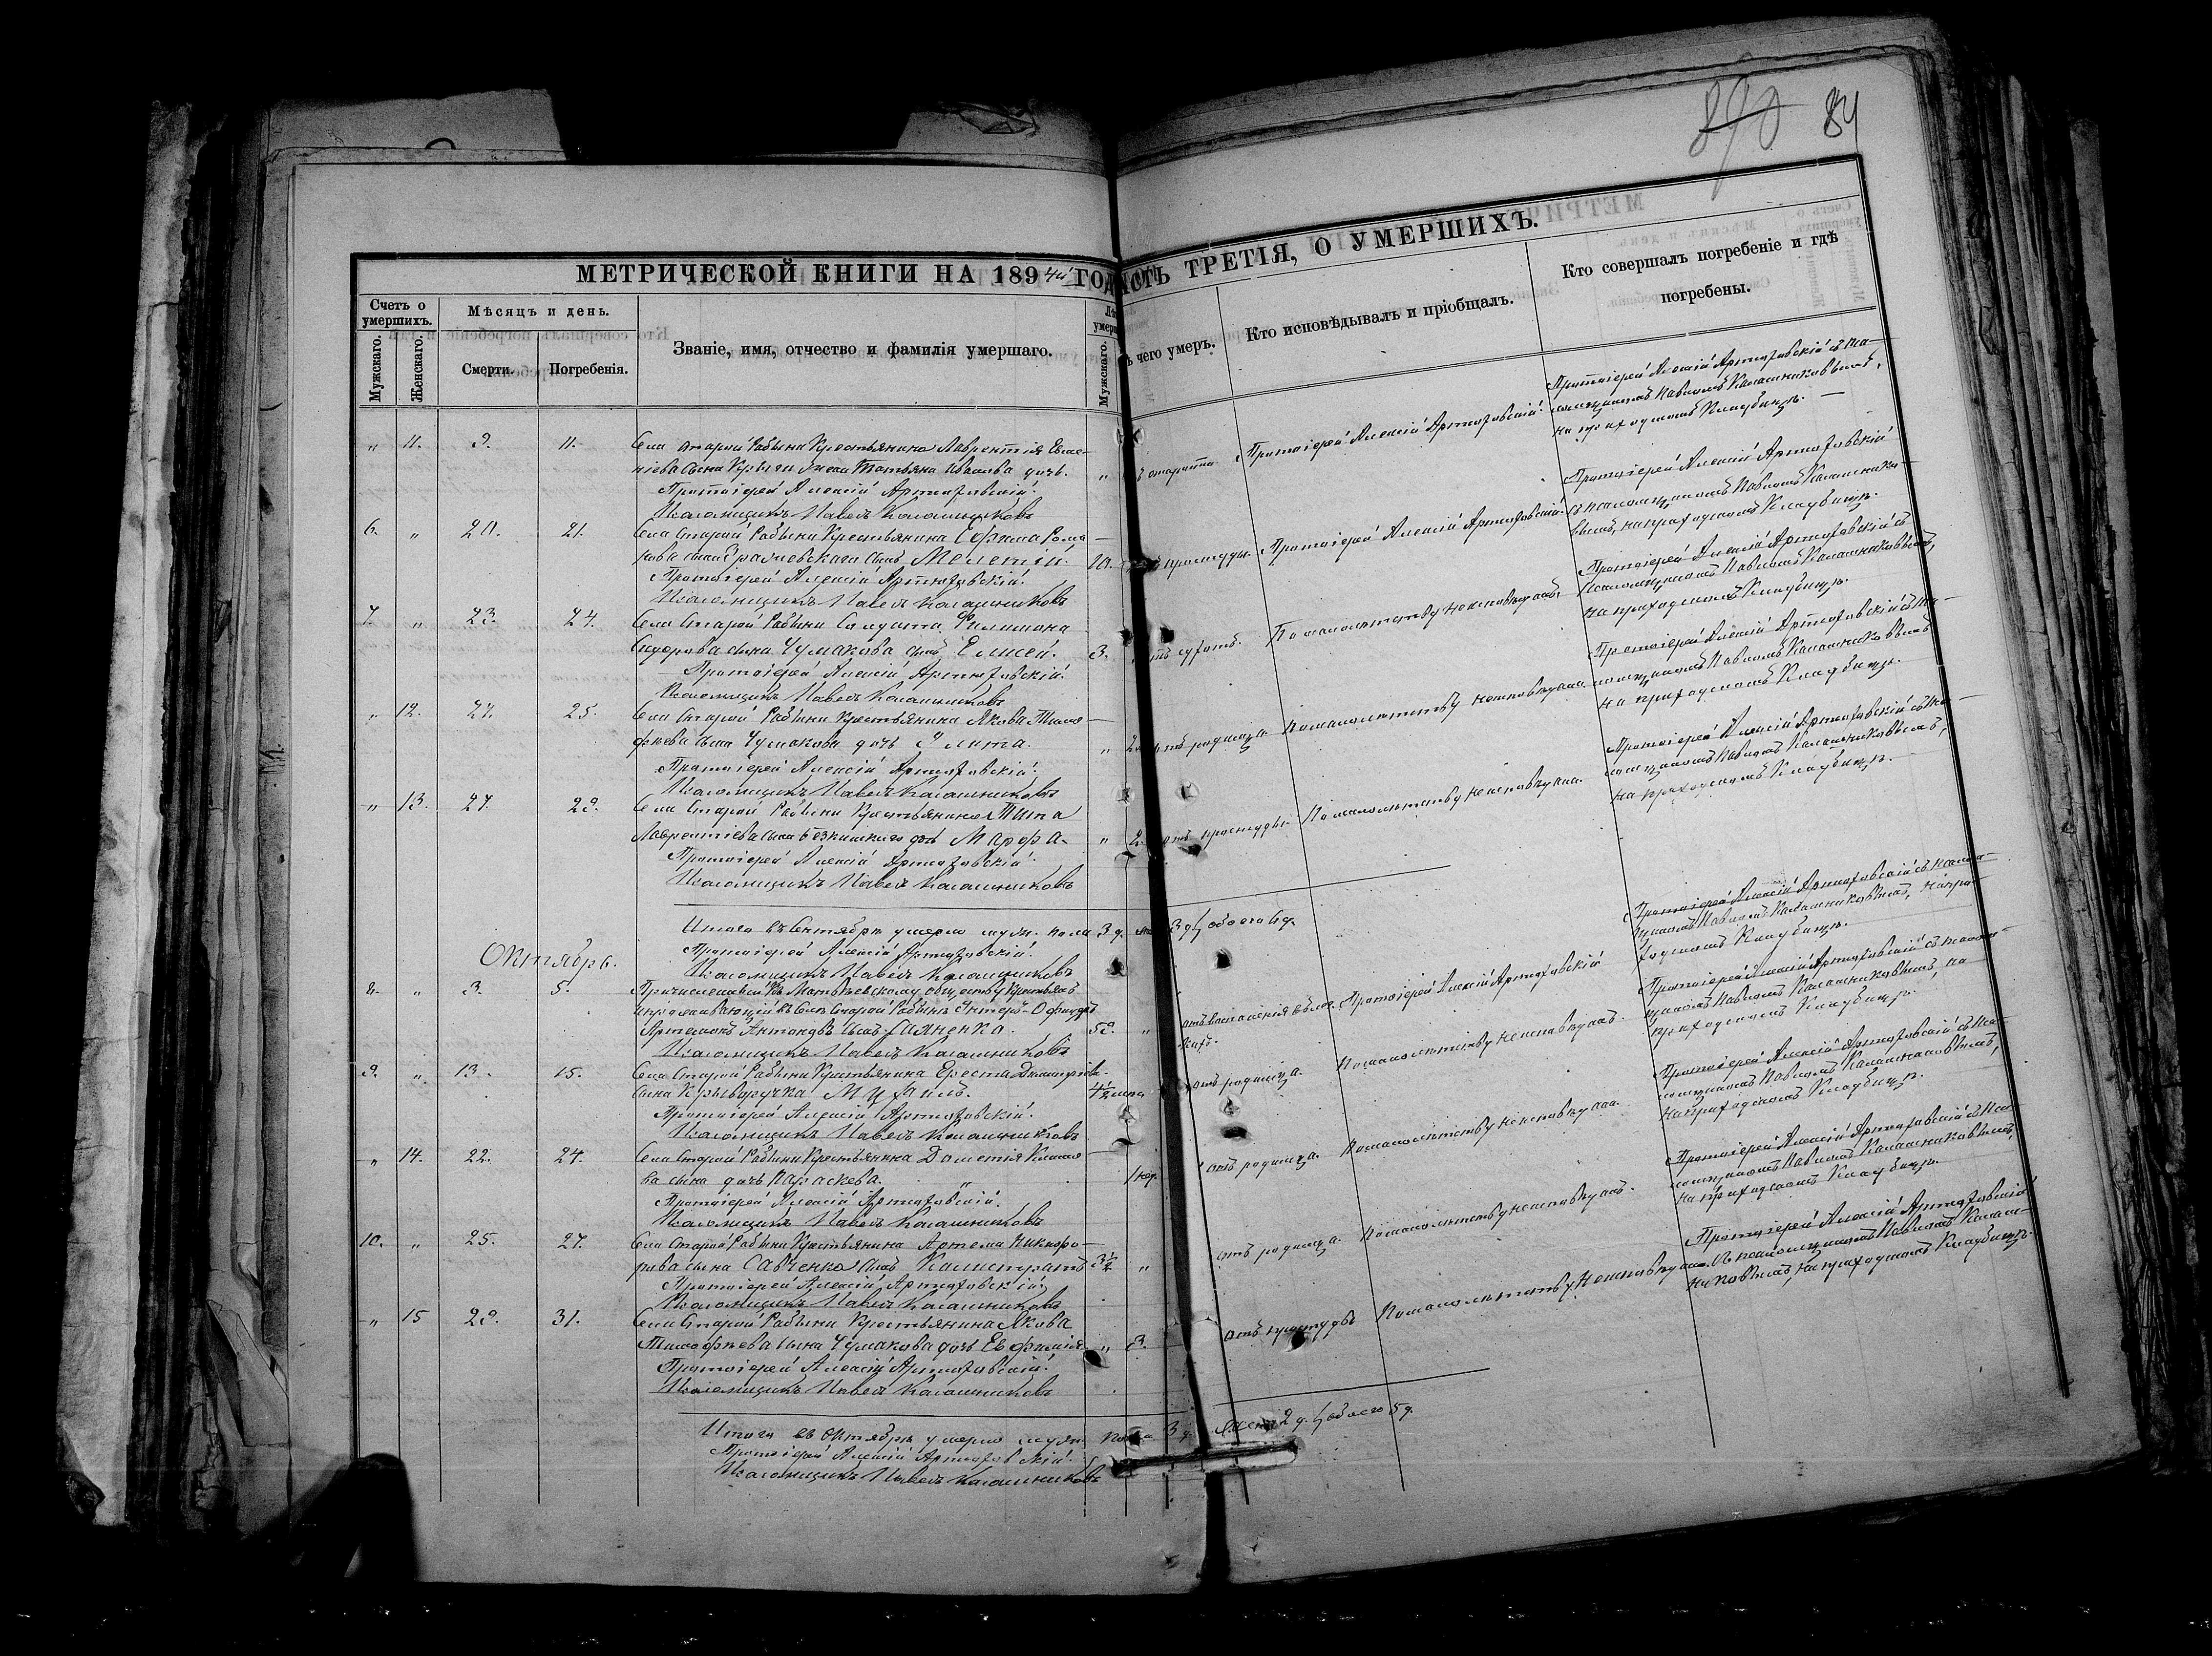 890 84
МЕТРИЧЕСКОЙ КНИГИ НА 1894й ГОД
СТЬ ТРЕТІЯ, О УМЕРШИХЪ.
Счетъ о умершихъ.
Мѣсяцъ и день.
Званіе, имя, отчество и фамилія умершаго.
Мужскаго.
Женскаго.
Смерти.
Погребенія.
Мужскаго.
чего умеръ.
Кто исповѣдывалъ и пріобщалъ.
Кто совершалъ погребеніе и гдѣ
погребены.
„ 11. 9. 11. Села Старой Рябыни Крестьянина Лаврентія
сына жена Татьяна Иванова дочь. „
Протоіерей Алексій Артюховскій.
Псаломщикъ Павелъ Калашниковъ
Протоіерей Алексій Артюховскій.
Протоіерей Алексій Артюховскій съ пса-
ломщикомъ Павломъ Калашниковымъ,
на приходскомъ Кладбищѣ. —
6. „ 20. 21. Села Старой Рябыни Крестьянина Ефима Рома-
нова сына сынъ Мелетій.
Протоіерей Алексій Артюховскій.
Псаломщикъ Павелъ Калашниковъ
простуды. Протоіерей Алексій Артюховскій.
Протоіерей Алексій Артюховскій
съ псаломщикомъ Павломъ Калашнико-
вымъ, на приходскомъ Кладбищѣ.
7. „ 23. 24. Села Старой Рябыни Солдата Филимона
Сидорова сына Чумакова сынъ Елисей. 3.
Протоіерей Алексій Артюховскій.
Псаломщикъ Павелъ Калашниковъ
По малолѣтству неисповѣданъ.
Протоіерей Алексій Артюховскій съ
псаломщикомъ Павломъ Калашниковымъ,
на приходскомъ Кладбищѣ.
„ 12. 25. Села Старой Рябыни Крестьянина Якова Тимо-
фѣева сына Чумакова дочь Улита. „ 2.
Протоіерей Алексій Артюховскій.
Псаломщикъ Павелъ Калашниковъ
отъ родимца. По малолѣтству неисповѣдана.
Протоіерей Алексій Артюховскій съ пса-
ломщикомъ Павломъ Калашниковымъ
на приходскомъ Кладбищѣ.
„ 13. 27. 29. Села Старой Рябыни Крестьянина Тита
Лаврентіева сына дочь Марфа. „ 2.
Протоіерей Алексій Артюховскій.
Псаломщикъ Павелъ Калашниковъ
отъ простуды. По малолѣтству неисповѣдана.
Протоіерей Алексій Артюховскій съ пса-
ломщикомъ Павломъ Калашниковымъ,
на приходскомъ Кладбищѣ.
Итого въ Сентябрѣ умерло муж. пола 3 д. 3 д. обоего 6 д.
Протоіерей Алексій Артюховскій.
Псаломщикъ Павелъ Калашниковъ
Октябрь.
8. „ 3. 5. Причисленный къ Матвѣевскому обществу Крестьянъ
проживающій въ Селѣ Старой Рябынѣ Унтеръ-Офицеръ
Артемонъ Антоновъ сынъ 59. „
Псаломщикъ Павелъ Калашниковъ
отъ воспаленія въ лег-
кихъ.
Протоіерей Алексій Артюховскій
Протоіерей Алексій Артюховскій съ псалом-
щикомъ Павломъ Калашниковымъ, на при-
ходскомъ Кладбищѣ.
9. „ 13. 15. Села Старой Рябыни Крестьянина Ореста Димитріева
сына Криворучка Михаилъ.
Протоіерей Алексій Артюховскій.
Псаломщикъ Павелъ Калашниковъ
отъ родимца. По малолѣтству неисповѣданъ.
Протоіерей Алексій Артюховскій съ псалом-
щикомъ Павломъ Калашниковымъ, на
приходскомъ Кладбищѣ.
„ 14. 22. 24. Села Старой Рябыни Крестьянина Дометія Климо-
ва сына дочь Параскева. 1 нед.
Протоіерей Алексій Артюховскій.
Псаломщикъ Павелъ Калашниковъ
отъ родимца. По малолѣтству неисповѣдана.
Протоіерей Алексій Артюховскій съ пса-
ломщикомъ Павломъ Калашниковымъ,
на приходскомъ Кладбищѣ.
10. „ 25. 27. Села Старой Рябыни Крестьянина Артема Никифо-
рова сына Савченко сынъ Калистратъ 3½ „
Протоіерей Алексій Артюховскій.
Псаломщикъ Павелъ Калашниковъ
отъ родимца. По малолѣтству неисповѣданъ.
Протоіерей Алексій Артюховскій съ пса-
ломщикомъ Павломъ Калашниковымъ,
на приходскомъ Кладбищѣ.
„ 15 29. 31. Села Старой Рябыни Крестьянина Якова
Тимофѣева сына Чумакова дочь Евфимія „ 3.
Протоіерей Алексій Артюховскій.
Псаломщикъ Павелъ Калашниковъ
отъ простуды По малолѣтству неисповѣдана.
Протоіерей Алексій Артюховскій
съ псаломщикомъ Павломъ Калаш-
никовымъ, на приходскомъ Кладбищѣ.
Итого въ Октябрѣ умерло муж. пола 3 д. женск. 2 д. обоего 5 д.
Протоіерей Алексій Артюховскій.
Псаломщикъ Павелъ Калашниковъ